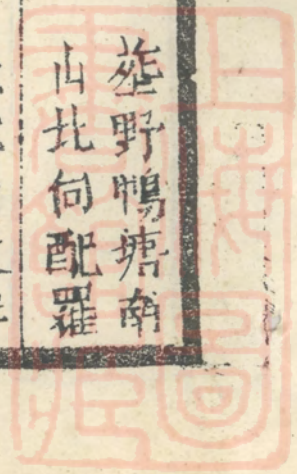 塟野鴨塘南
山北向配羅